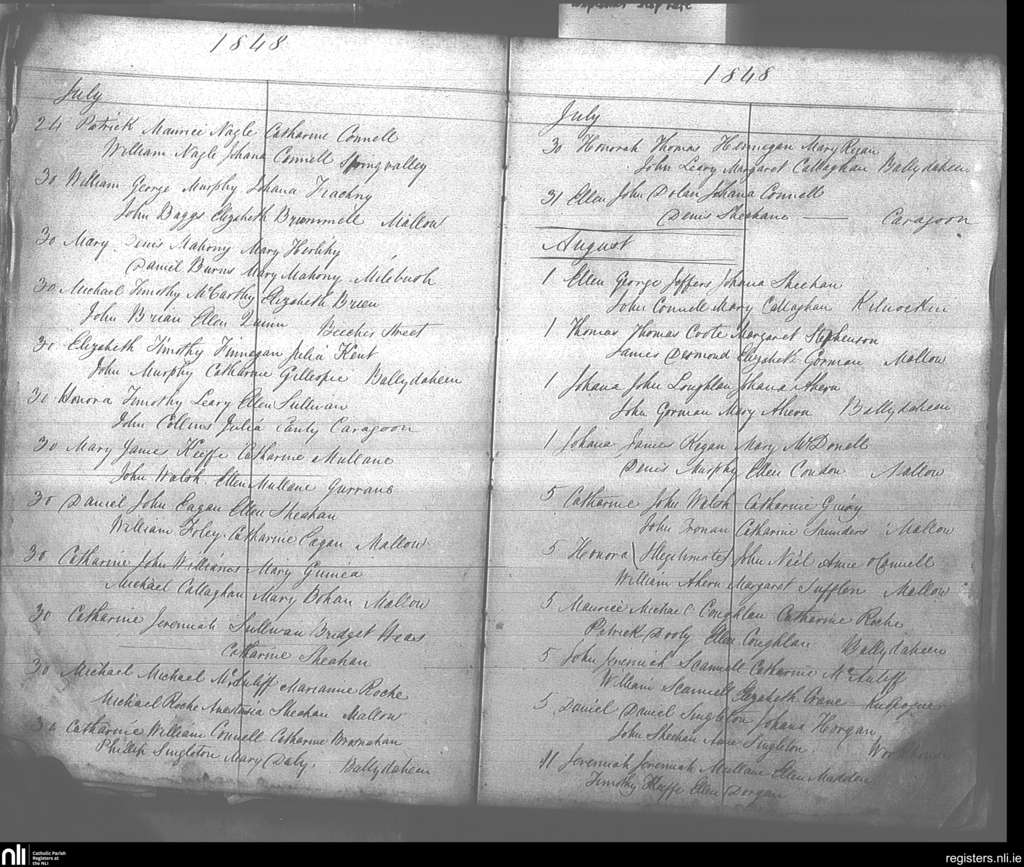 1848
July
24 Patrick Maurice Nagle Catharine Connell
William Nagle Johana Connell Springvalley
30 William George Murphy Johana
John Baggs Elizabeth Mallow
30 Mary Denis Mahony Mary Herlihy
Daniel Burns Mary Mahony Milebush
30 Michael Timothy McCarthy Elizabeth Brien
John Brian Ellen Quinn Beeches Street
30 Elizabeth Timothy Finnegan Julia Kent
John Murphy Catharine Gillespie Ballydaheen
30 Honora Timothy Leary Ellen Sullivan
John Collins Julia Caragoon
30 Mary James Keeffe Catharine Mullane
John Walsh Ellen Mullane Gurrane
30 Daniel John Eagan Ellen Sheahan
William Foley Catharine Eagan Mallow
30 Catharine John Williams Mary Guinea
Michael Callaghan Mary Bohan Mallow
30 Catharine Jeremiah Sullivan Bridget
Catharine Sheahan
30 Michael Michael McAuliff Marianne Roche
Michael Roche Anestasia Sheahan Mallow
30 Catharine William Connell Catharine Brosnahan
Phillip Singleton Mary Daly Ballydaheen
1848
July
30 Honorah Thomas Hennegan Mary Regan
John Leary Margaret Callaghan Ballydaheen
31 Ellen John Dolan Johana Connell
Denis Sheehane — Caragoon
August
1 Ellen George Jeffers Johana Sheehan
John Connell Mary Callaghan Kilnockin
1 Thomas Thomas Coote Margaret Stephenson
James Desmond Elizabeth Gorman Mallow
1 Johana John Loughlan Johana Ahern
John Gorman Mary Ahern Ballydaheen
1 Johana James Regan Mary McDonell
Denis Murphy Ellen Condon Mallow
5 Catharine John Walsh Catharine
John Catharine Saunders Mallow
5 Honora (Illegitimate) John Neil Anne oConnell
William Ahern Margaret Mallow
5 Maurice Michael Coughlan Catharine Roche
Patrick Dooly Ellen Coughlan Ballydaheen
5 John Jeremiah Scannell Catharine McAuliff
William Scannell Elizabeth Crane
5 Daniel Daniel Singleton Johana Horgan
John Sheehan Anne Singleton Workhouse
11 Jeremiah Jeremiah Mullane Ellen Madden
Timothy Keeffe Ellen Dorgan
nli
Catholic Parish
Registers at
the NLI
registers.nli.ie